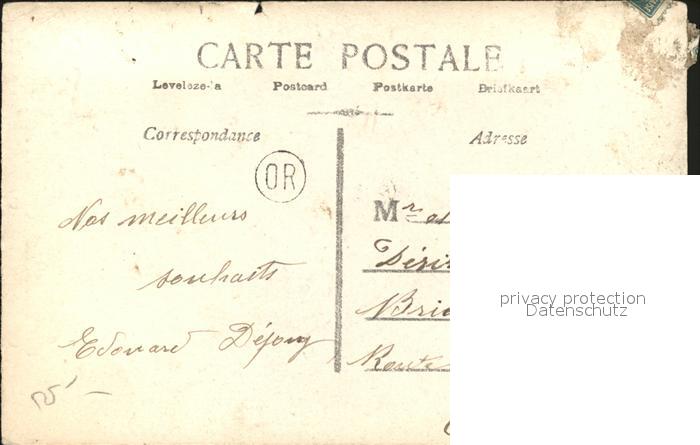 CARTE POSTALE
Levelezs-la Postcard Postkarte Briefkaart
Correspondance Adresse
OR
Nos meilleurs
souhaits
Edouard Déjong
Mr
privacy protection
Datenschutz
Route